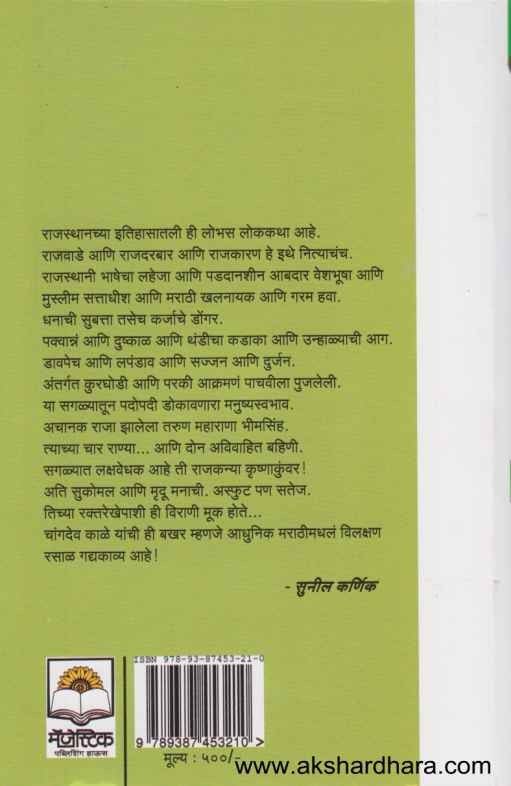 राजस्थानच्या इतिहासातली ही लोभस लोककथा आहे.
राजवाडे आणि राजदरबार आणि राजकारण हे इथे नित्याचंच.
राजस्थानी भाषेचा लहेजा आणि पडदानशीन आबदार वेशभूषा आणि
मुस्लीम सत्ताधीश आणि मराठी खलनायक आणि गरम हवा.
धनाची सुबत्ता तसेच कर्जाचे डोंगर.
पक्वान्नं आणि दुष्काळ आणि थंडीचा कडाका आणि उन्हाळ्याची आग.
डावपेच आणि लपंडाव आणि सज्जन आणि दुर्जन.
अंतर्गत कुरघोडी आणि परकी आक्रमणं पाचवीला पुजलेली.
या सगळ्यातून पदोपदी डोकावणारा मनुष्यस्वभाव.
अचानक राजा झालेला तरुण महाराणा भीमसिंह.
त्याच्या चार राण्या... आणि दोन अविवाहित बहिणी.
सगळ्यात लक्षवेधक आहे ती राजकन्या कृष्णाकुंवर!
अति सुकोमल आणि मृदू मनाची. अस्फुट पण सतेज.
तिच्या रक्तरेखेपाशी ही विराणी मूक होते...
चांगदेव काळे यांची ही बखर म्हणजे आधुनिक मराठीमधलं विलक्षण
रसाळ गद्यकाव्य आहे!
- सुनील कर्णिक
ISBN 978-93-87453-21-0
9 789387 453210 >
मॅजेस्टिक
पब्लिशिंग हाऊस
मूल्य : ५००/-
www.akshardhara.com